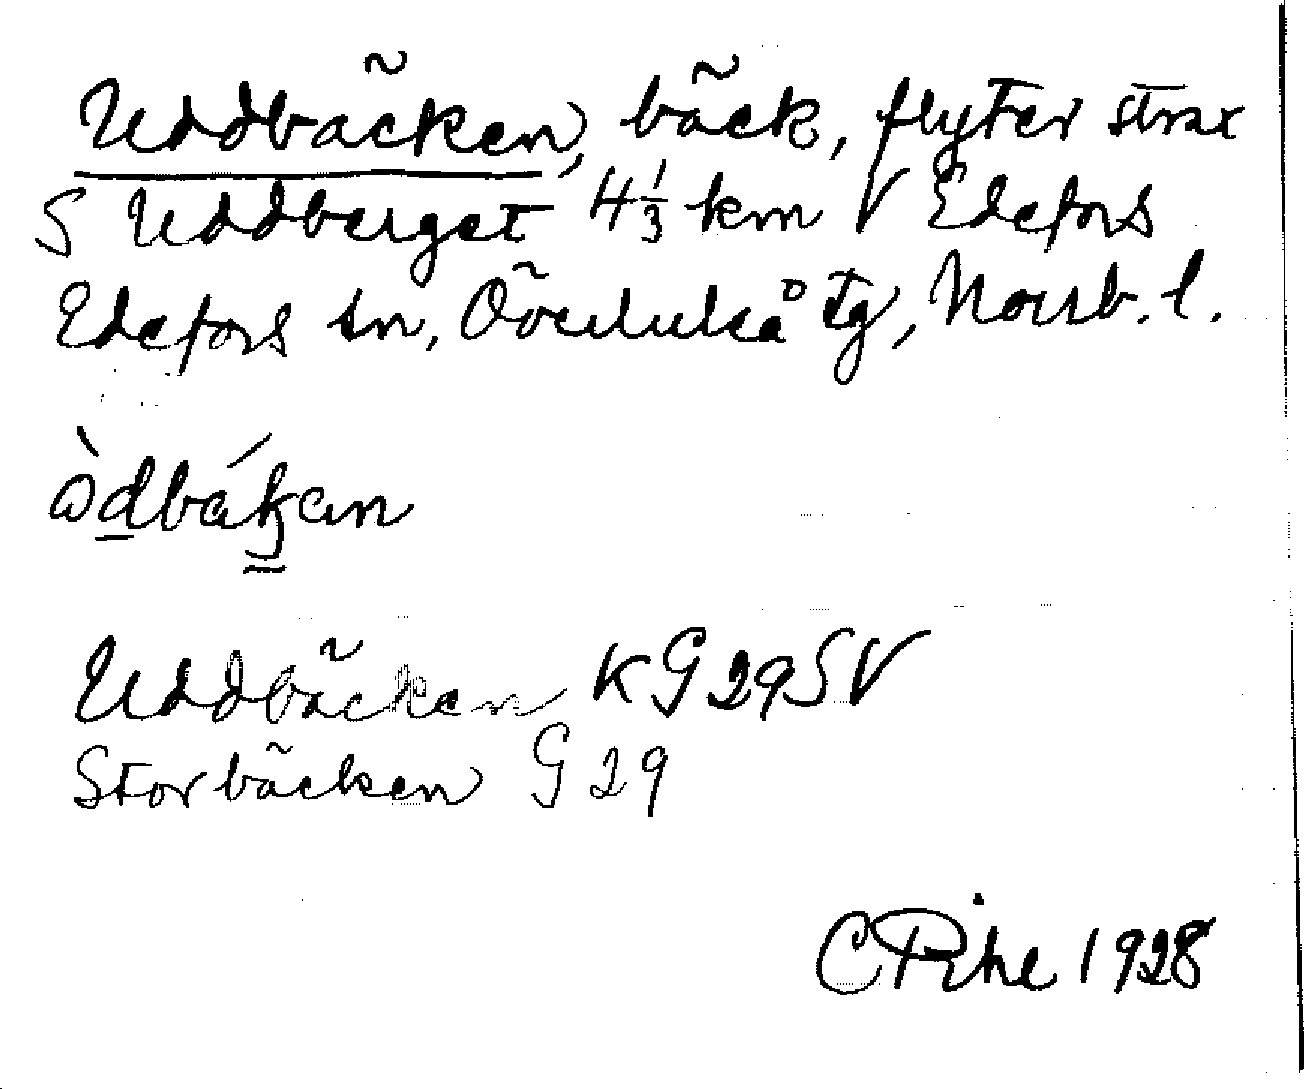 Uddbäcken, bäck, flyter strax
S Uddberget 4 1/3 km V Edefors
Edefors sn, Överluleå tg, Norrb. l.
Uddbäcken KG29SV
Storbäcken G29
C Pihe 1928